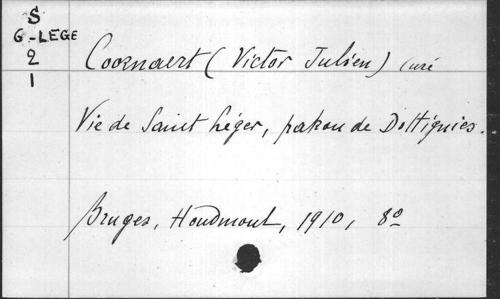 S
G-LEGE
2
1
Coornaert (Victor Julien) curé
Vie de Saint Léger, patron de Dottignies.
Bruges, Houdmont, 1910, 8º